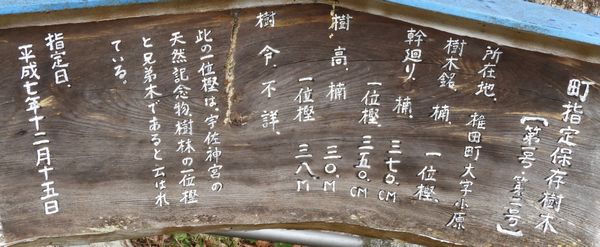 町指定保存樹木
【第一号・第二号】
所在地、椎田町大字小原
樹木銘 楠、一位樫、
幹廻り、楠、三七〇、CM
一位樫、三五〇、CM
樹高 楠 三〇、M
一位樫 三八、M
樹令、不詳、
此の一位樫は、宇佐神宮の
天然記念物、樹林の一位樫
と兄弟木であると云はれ
ている。
指定日、
平成七年十二月十五日